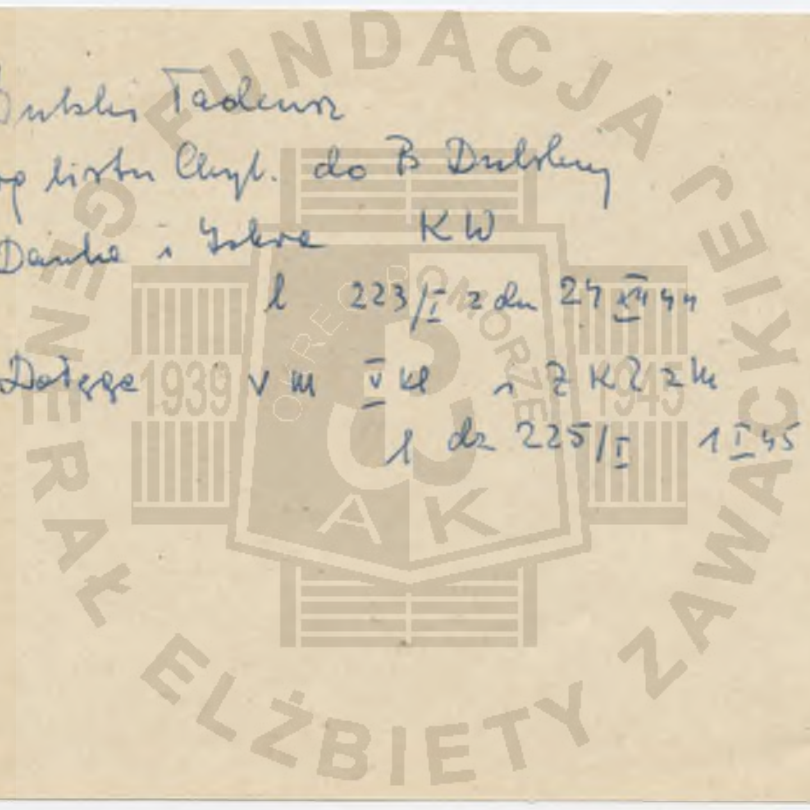 Tadeusz
listu Chyl. do B Dulskiej
Danka i Iskra KW
l 223/I z dn 24 XII 44
Dołęga V m V kl i Z K Z z M
l dz 225/I 1 I 45
FUNDACJA
GENERAŁ ELŻBIETY ZAWACKIEJ
OKRĘG POMORZE
1939 1945
AK